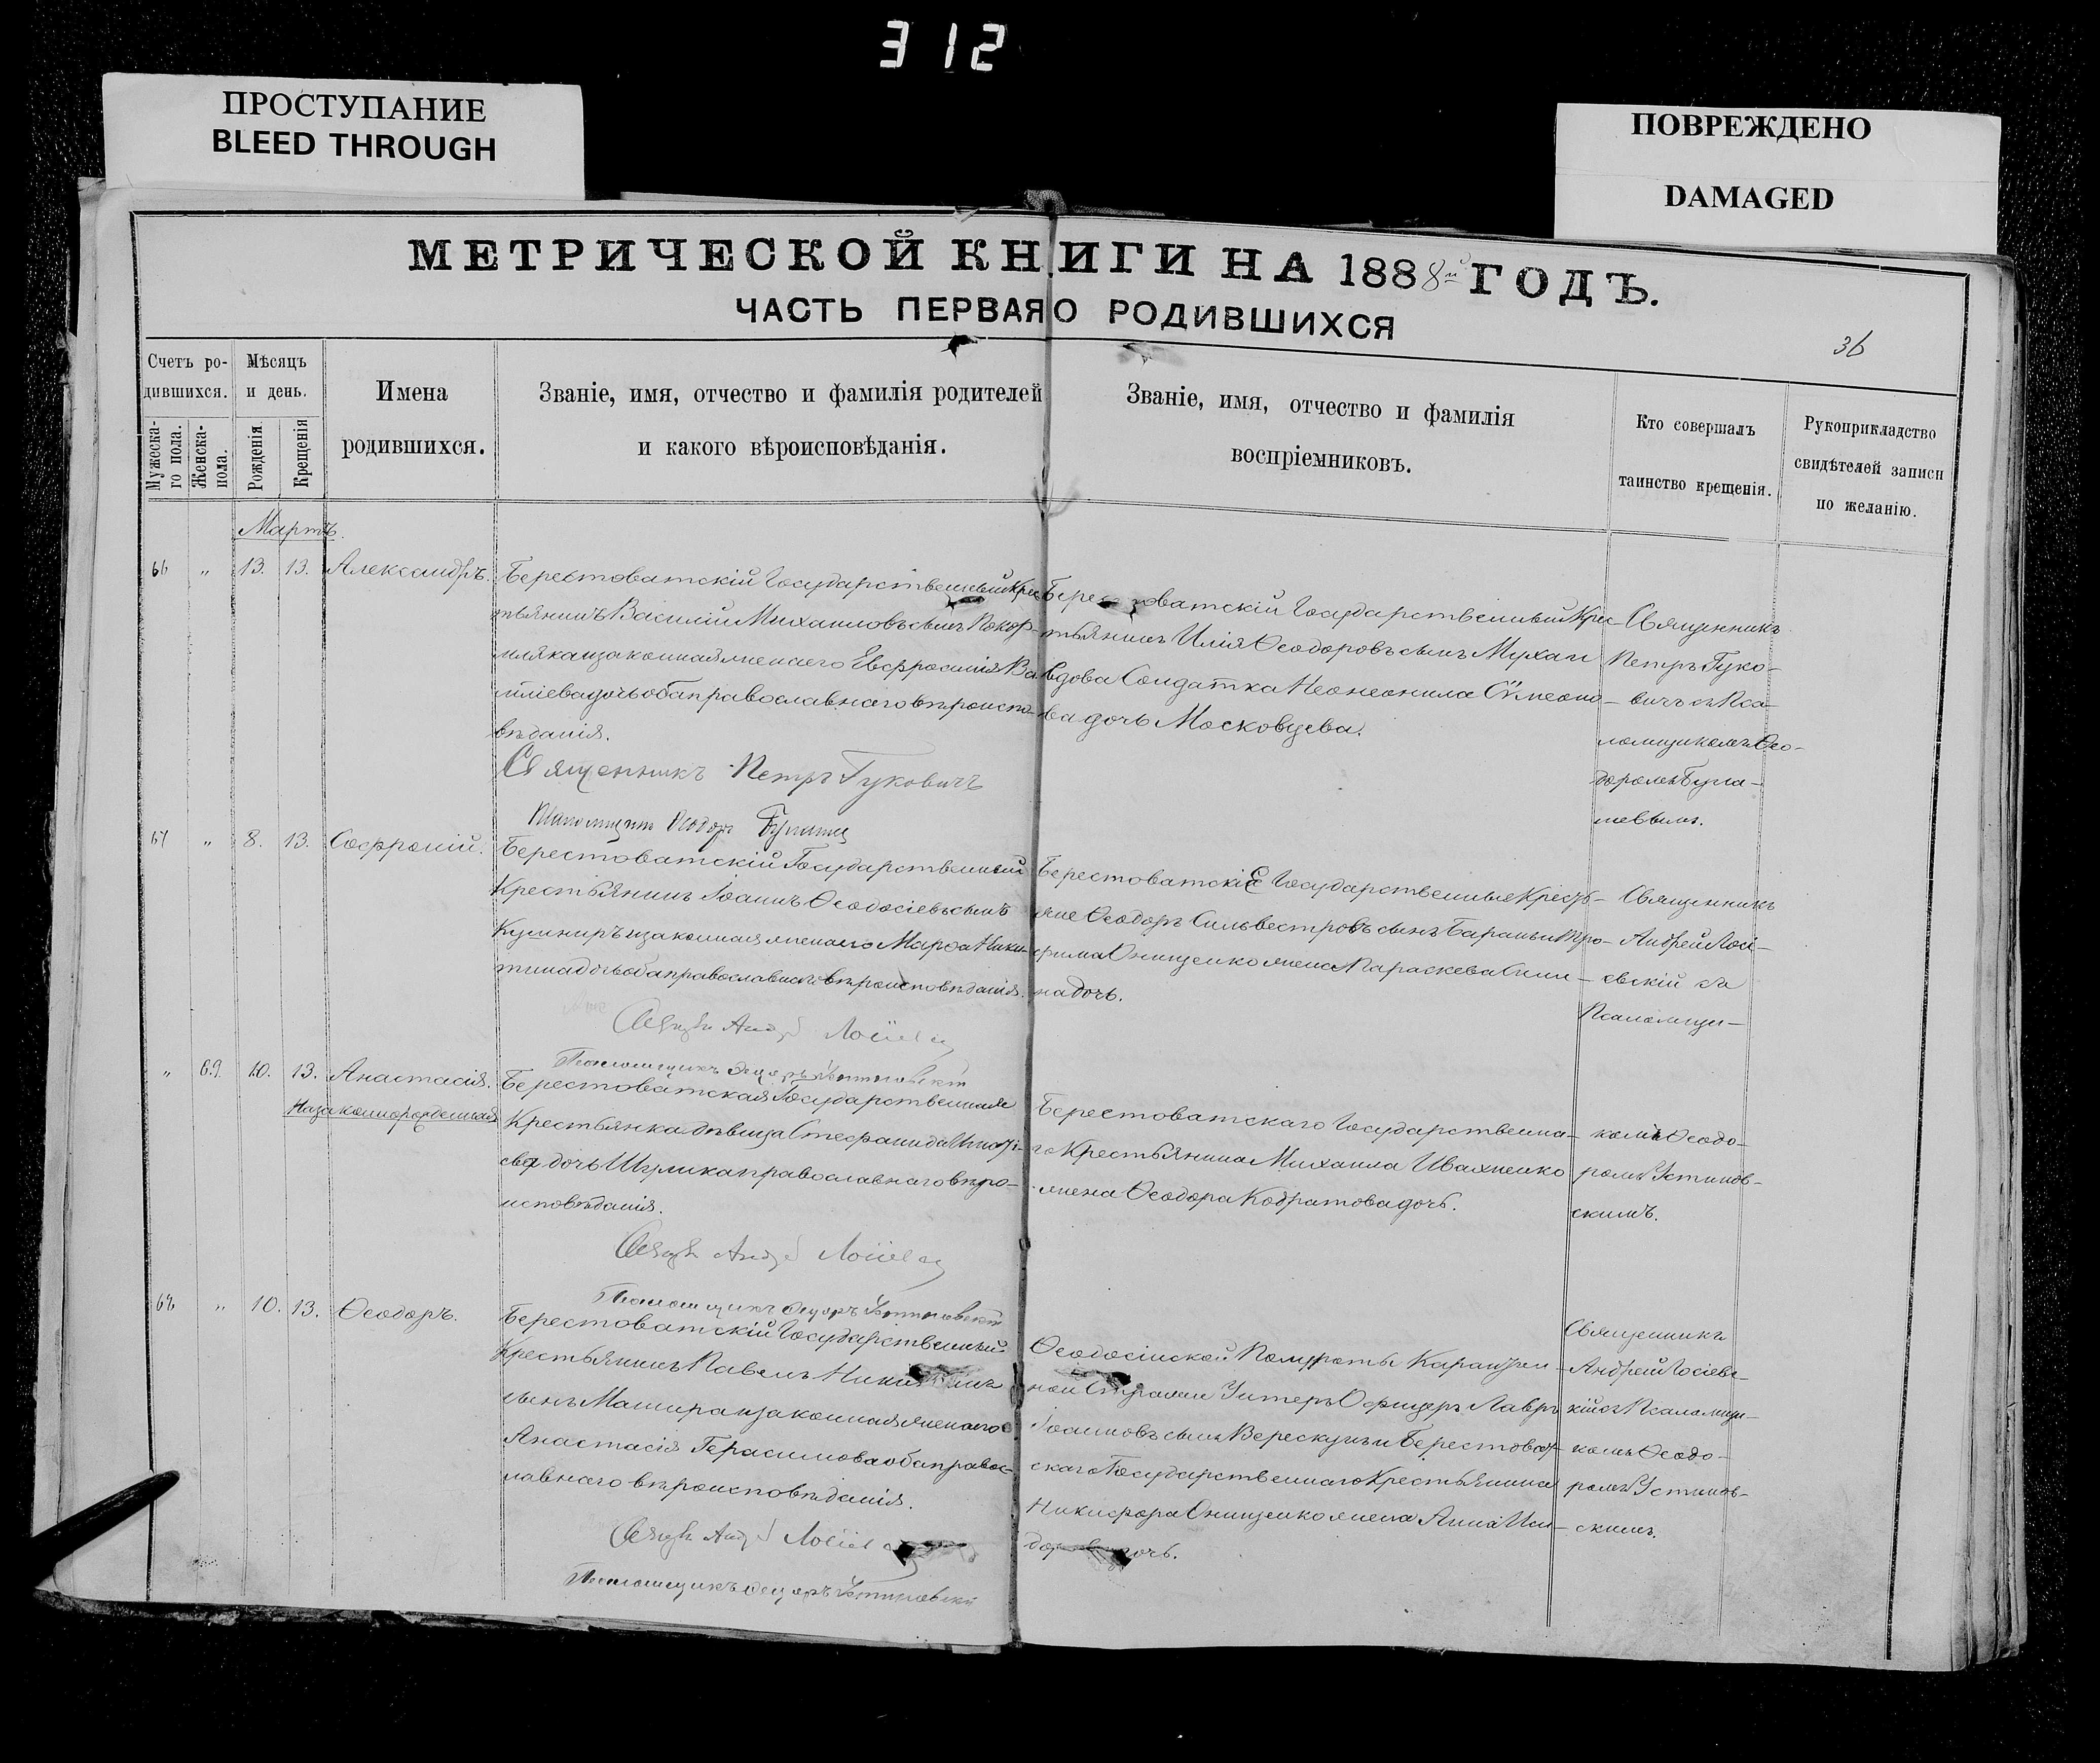 312
ПРОСТУПАНИЕ
BLEED THROUGH
ПОВРЕЖДЕНО
DAMAGED
МЕТРИЧЕСКОЙ КНИГИ НА 1888й ГОДЪ.
ЧАСТЬ ПЕРВАЯ О РОДИВШИХСЯ
36
Счетъ ро-
дившихся.
Мужеска-
го пола.
Женска-
пола.
Мѣсяцъ
и день.
Рожденія
Крещенія
Имена
родившихся.
Званіе, имя, отчество и фамилія родителей
и какого вѣроисповѣданія.
Званіе, имя, отчество и фамилія
воспріемниковъ.
Кто совершалъ
таинство крещенія.
Рукоприкладство
свидѣтелей записи
по желанію.
Мартъ.
66 " 13. 13. Александръ.
Берестоватскій Государственный Крес
тьянинъ Василій Михаиловъ сынъ Покор-
мляка и законная жена его Евфросинія Ва
силіева дочь оба православнаго вѣроиспо-
вѣданія.
Священникъ Петръ Гуковичъ
Берестоватскій Государственный Крес-
тьянинъ Илія Ѳеодоровъ сынъ Мухаи
Вдова Солдатка Неонила Сѵмеоно-
ва дочь Московцева.
Священникъ
Петръ Гуко-
вичъ съ Пса-
ломщикомъ Ѳео-
доромъ
67 " 8. 13. Софроній.
Берестоватскій Государственный
Крестьянинъ Іоаннъ Ѳеодосіевъ сынъ
Кушниръ и законная жена его Марѳа Ники-
тина дочь оба православнаго вѣроисповѣданія.
Берестоватскіе Государственные Кресть-
яне Ѳеодоръ Сильвестровъ сынъ Баранъ и Тро-
фима Онищенко жена Параскева
на дочь.
Священникъ
Андрей Лосі-
евскій съ
Псаломщи-
" 69. 10. 13. Анастасія.
Незаконнорожденная
Берестоватская Государственная
Крестьянка дѣвица Стефанида Игнаті-
ева дочь Шулика православнаго вѣро-
исповѣданія.
Берестоватскаго Государственна-
го Крестьянина Михаила Ивахненко
жена Ѳеодора Кодратова дочь.
комъ Ѳеодо-
ромъ Устинов-
скимъ.
68 " 10. 13. Ѳеодоръ.
Псаломщикъ Ѳеодоръ Устиновскій
Берестоватскій Государственный
Крестьянинъ Павелъ
сынъ Машира и законная жена его
Анастасія Герасимова оба правос-
лавнаго вѣроисповѣданія.
Псаломщикъ Ѳеодоръ Устиновскій
Ѳеодосійской Полуроты Карантин-
ной Стражи Унтеръ Офицеръ Лавръ
Іоанновъ сынъ Верескунъ и Берестоват-
скаго Государственнаго Крестьянина
Никифора Онищенко жена Анна Иси-
дорова дочь.
Священникъ
Андрей Лосіевс-
кій съ Псаломщи-
комъ Ѳеодо-
ромъ Устинов-
скимъ.